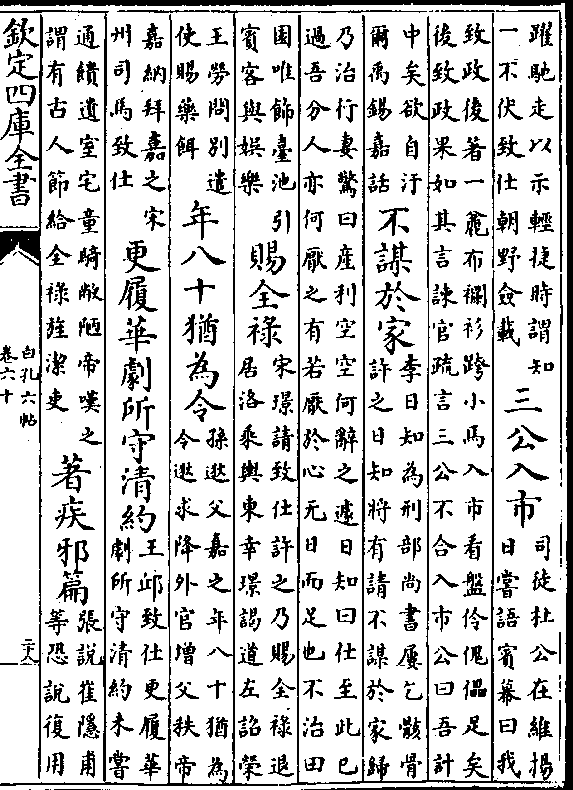 躍馳走以示輕捷時謂知
一不伏致仕朝野僉載
三公入市
司徒杜公在維揚
日嘗語賓幕曰我
致政後著一麄布襴衫跨小馬入市看盤伶傀儡足矣
後致政果如其言諫官疏言三公不合入市公曰吾計
中矣欲自汙
爾禹錫嘉話
不謀於家
李日知為刑部尚書屢乞骸骨
許之日知將有請不謀於家歸
乃治行妻驚曰產利空空何辭之遽日知曰仕至此已
過吾分人亦何厭之有若厭於心无日而足也不治田
園唯飾臺池引
賓客與娛樂
賜全祿
宋璟請致仕許之乃賜全祿退
居洛乘輿東幸璟謁道左詔榮
王勞問別遣
使賜藥餌
年八十猶為令
孫逖父嘉之年八十猶為
令逖求降外官增父秩帝
嘉納拜嘉之宋
州司馬致仕
更履華劇所守清約
王邱致仕更履華
劇所守清約未嘗
通饋遺室宅童騎敝陋帝嘆之
謂有古人節給全祿旌潔吏
著疾邪篇
張說崔隱甫
等恐說復用
欽定四庫全書
白孔六帖
卷六十